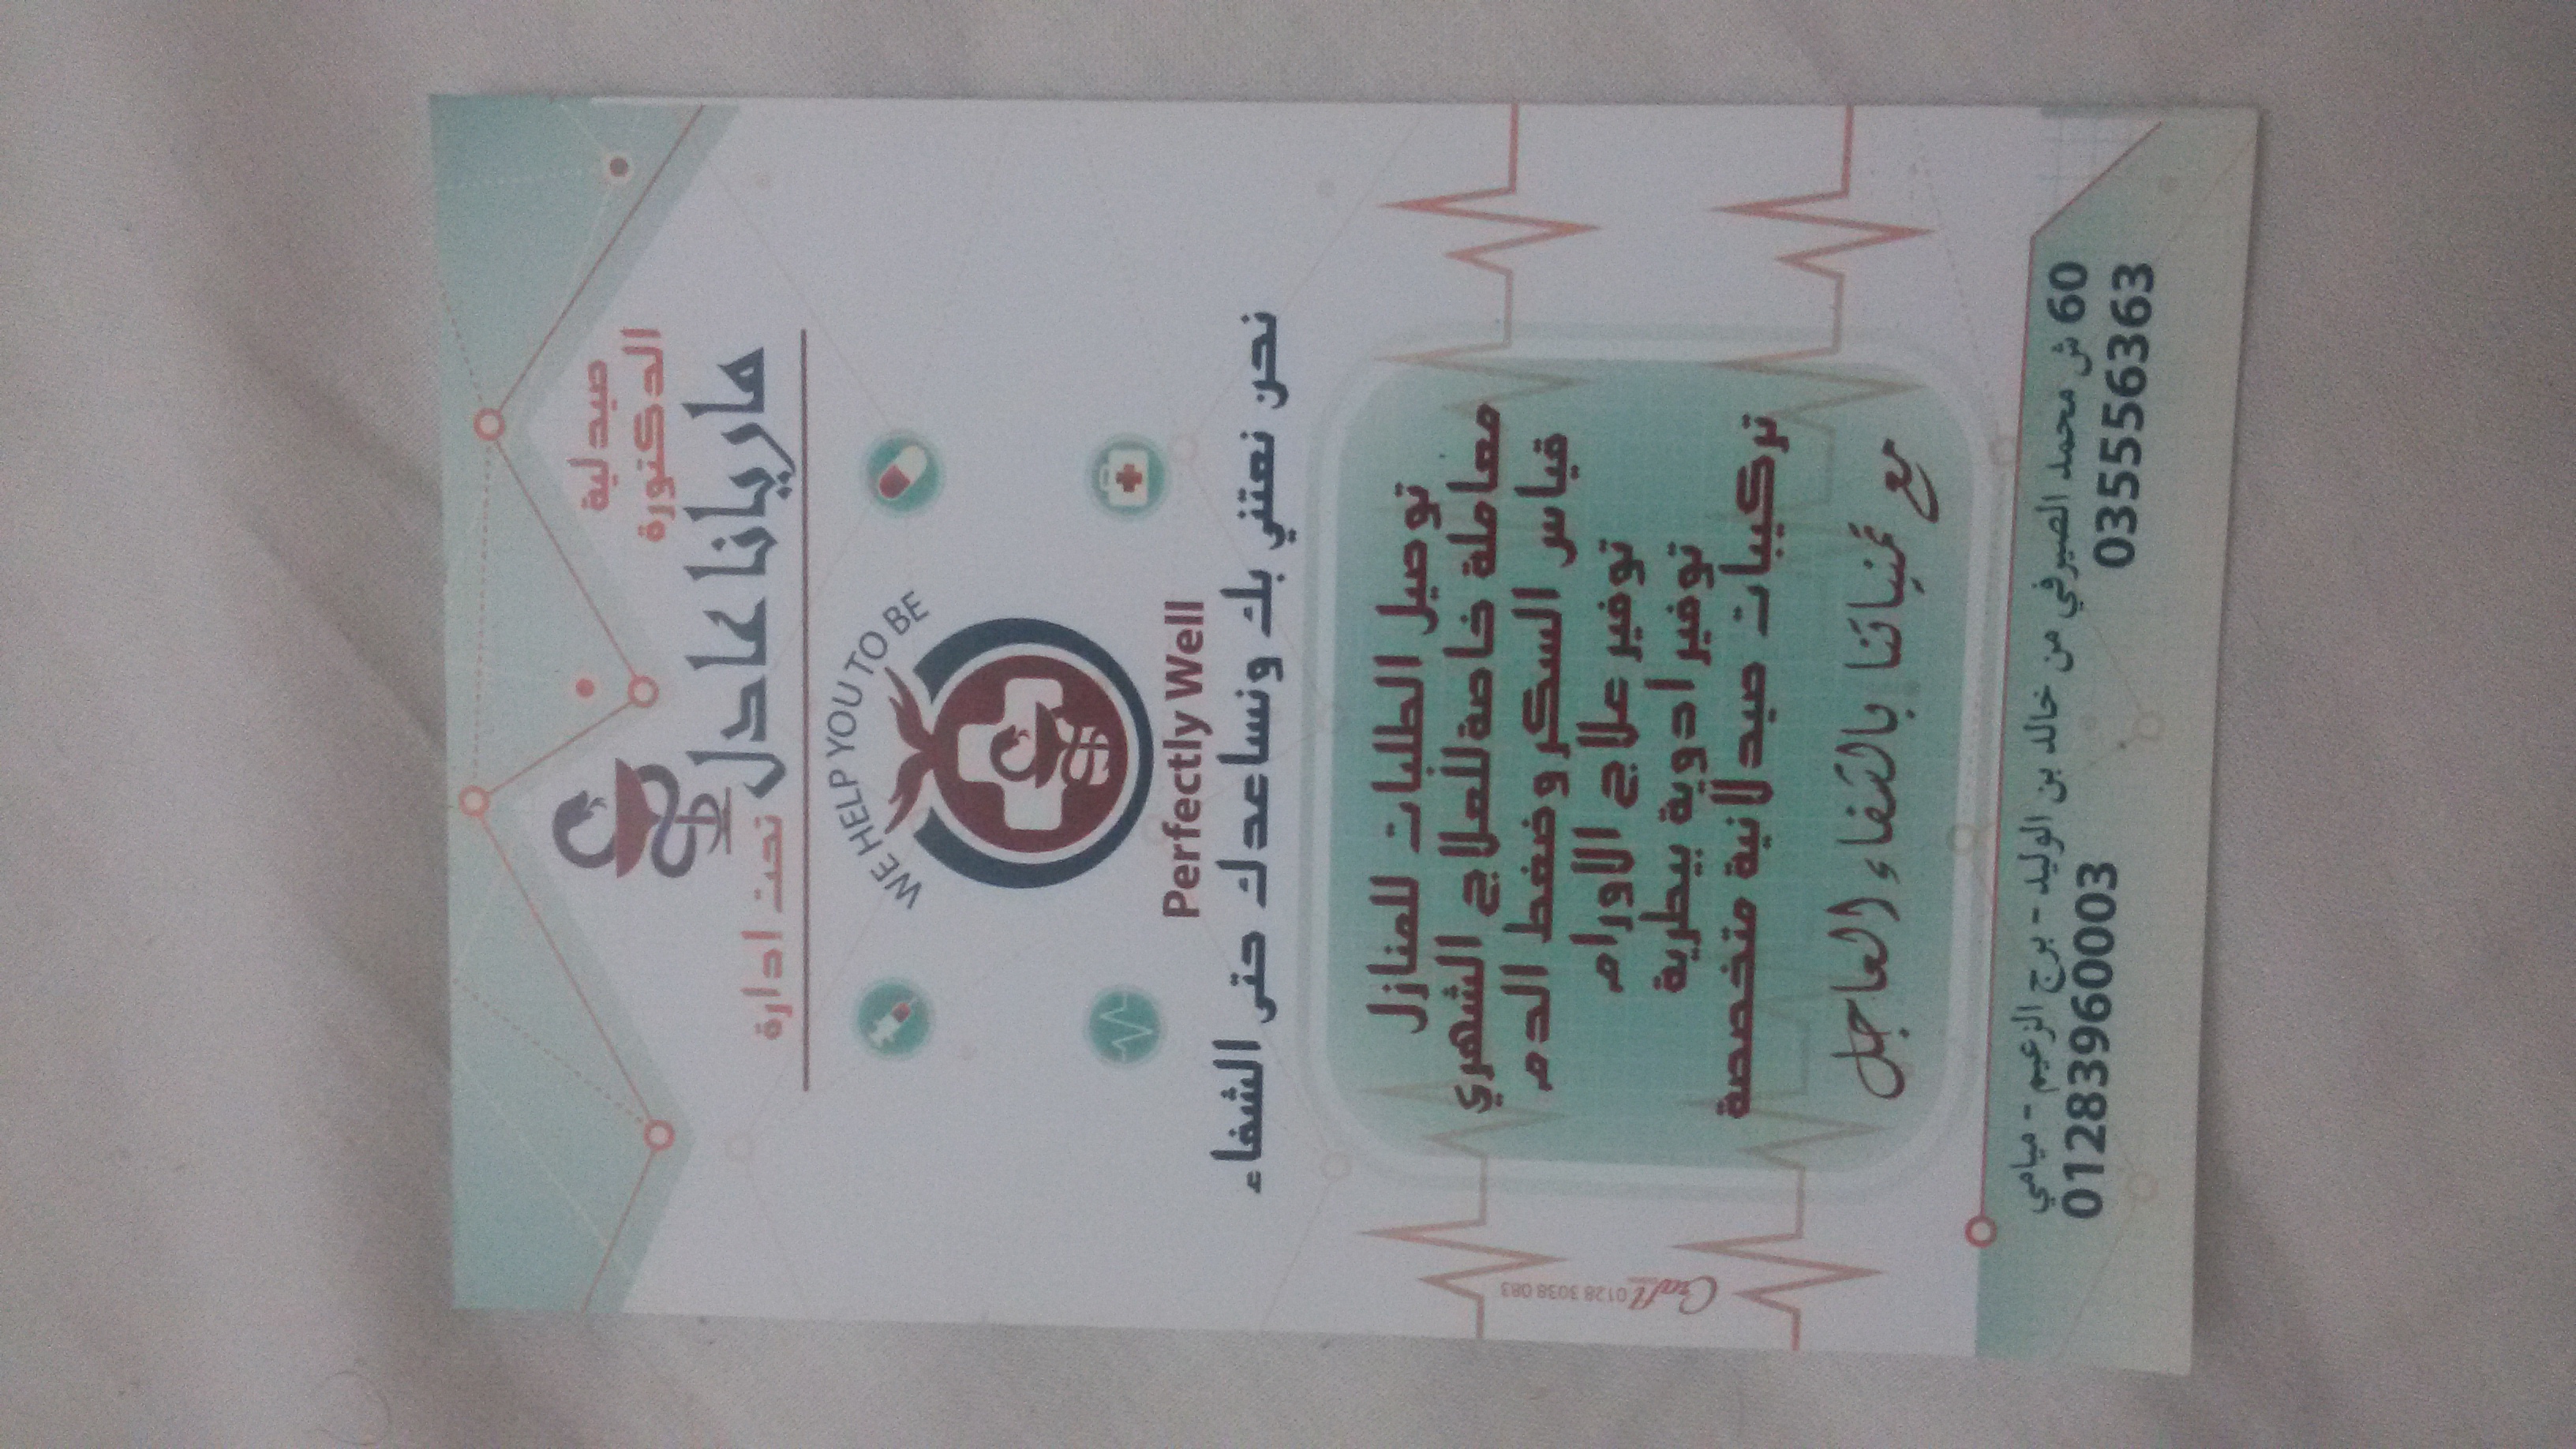 صيدلية
الدكتورة
ماريانا عادل
تحت ادارة
WE HELP YOU TO BE
Perfectly Well
نحن نعتني بك ونساعدك حتى الشفاء
توصيل الطلبات للمنازل
معاملة خاصة للعلاج الشهري
قياس السكر وضغط الدم
توفير علاج الاورام
توفير ادوية بيطرية
تركيبات صيدلانية متخصصة
مع تمنياتنا بالشفاء العاجل
60 ش محمد الصيرفي من خالد بن الوليد - برج الزعيم - ميامي
035556363
01283960003
Craft 0128 3038 083